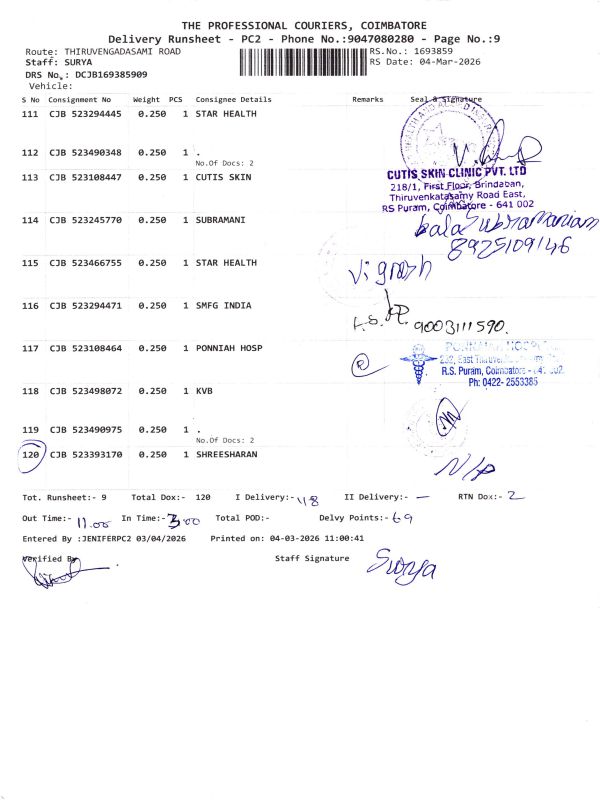 THE PROFESSIONAL COURIERS, COIMBATORE
Delivery Runsheet - PC2 - Phone No.:9047080280 - Page No.:9
Route: THIRUVENGADASAMI ROAD RS.No.: 1693859
Staff: SURYA RS Date: 04-Mar-2026
DRS No.: DCJB169385909
Vehicle:
S No Consignment No Weight PCS Consignee Details Remarks Seal & Signature
111 CJB 523294445 0.250 1 STAR HEALTH
112 CJB 523490348 0.250 1 .
No.Of Docs: 2
113 CJB 523108447 0.250 1 CUTIS SKIN
CUTIS SKIN CLINIC PVT. LTD
218/1, First Floor, Brindavan,
Thiruvenkatasamy Road East,
RS Puram, Coimbatore - 641 002
114 CJB 523245770 0.250 1 SUBRAMANI
balaSubramaniam
8925109146
115 CJB 523466755 0.250 1 STAR HEALTH
Vignesh
116 CJB 523294471 0.250 1 SMFG INDIA
9003111590.
117 CJB 523108464 0.250 1 PONNIAH HOSP
232, East
R.S. Puram, Coimbatore - 641 002.
Ph: 0422- 2553385
118 CJB 523498072 0.250 1 KVB
119 CJB 523490975 0.250 1 .
No.Of Docs: 2
120 CJB 523393170 0.250 1 SHREESHARAN
N/P
Tot. Runsheet:- 9 Total Dox:- 120 I Delivery:- 118 II Delivery:- — RTN Dox:- 2
Out Time:- 11.00 In Time:- 3.00 Total POD:- Delvy Points:- 69
Entered By :JENIFERPC2 03/04/2026 Printed on: 04-03-2026 11:00:41
Verified By Staff Signature Surya